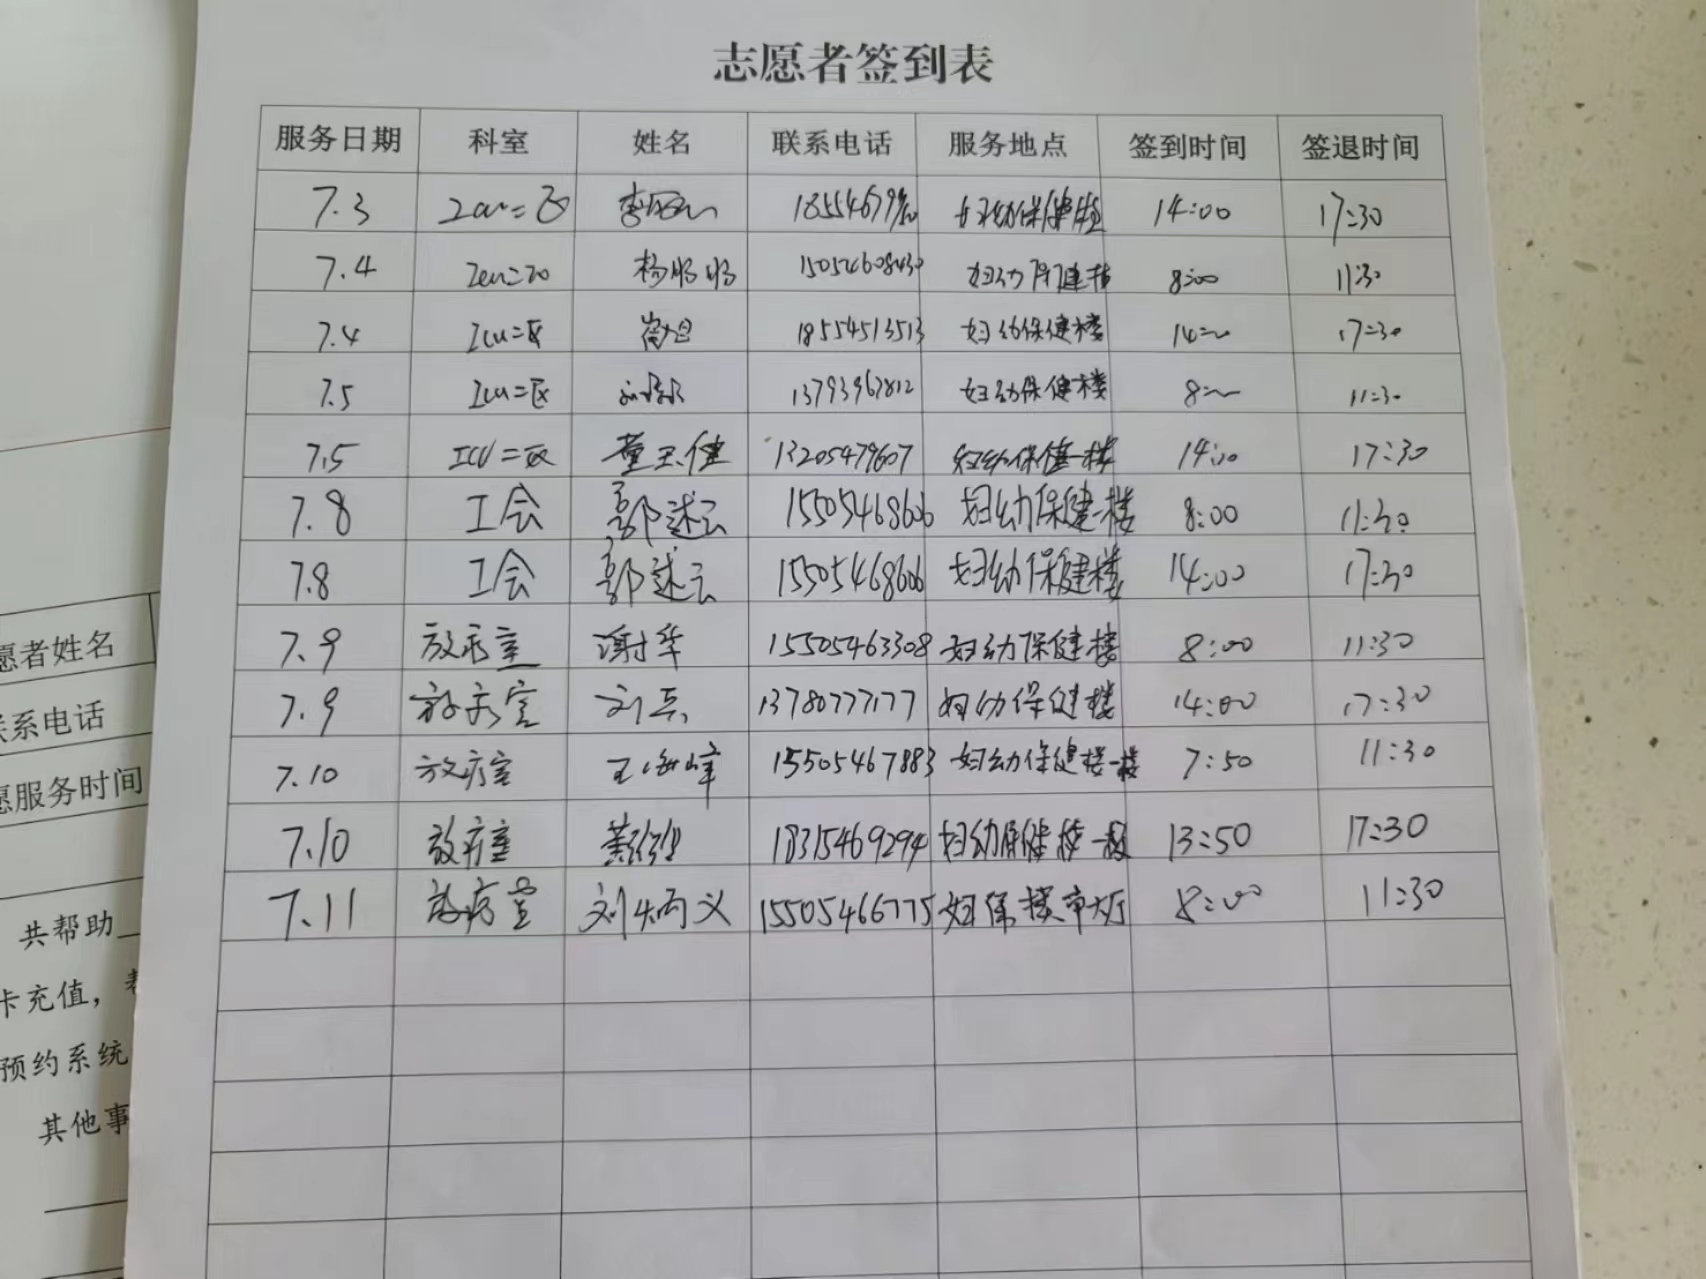 志愿者签到表
服务日期 科室 姓名 联系电话 服务地点 签到时间 签退时间
7.3 Icu二区 妇幼保健楼 14:00 17:30
7.4 Icu二区 杨明明 15054608430 妇幼保健楼 8:00 11:30
7.4 Icu二区 18554513513 妇幼保健楼 14:00 17:30
7.5 Icu二区 13793967812 妇幼保健楼 8:00 11:30
7.5 ICU二区 董玉健 13205479607 妇幼保健一楼 14:00 17:30
7.8 工会 郭述云 15505468606 妇幼保健一楼 8:00 11:30
7.8 工会 郭述云 15505468606 妇幼保健楼 14:00 17:30
7.9 放疗室 谢华 15505463308 妇幼保健楼 8:00 11:30
7.9 放疗室 刘兵 13780777177 妇幼保健楼 14:00 17:30
7.10 放疗室 王海峰 15505467883 妇幼保健楼一楼 7:50 11:30
7.10 放疗室 18315469294 妇幼保健楼一楼 13:50 17:30
7.11 放疗室 刘炳义 15505466775 妇保楼 大厅 8:00 11:30
愿者姓名
联系电话
愿服务时间
共帮助
卡充值，
预约系统
其他事